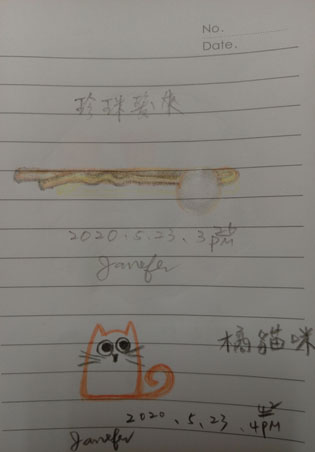 No.
Date.
珍珠髮夾
2020.5.23.3PM
Janefer
橘貓咪
2020.5.23.4PM
Janefer